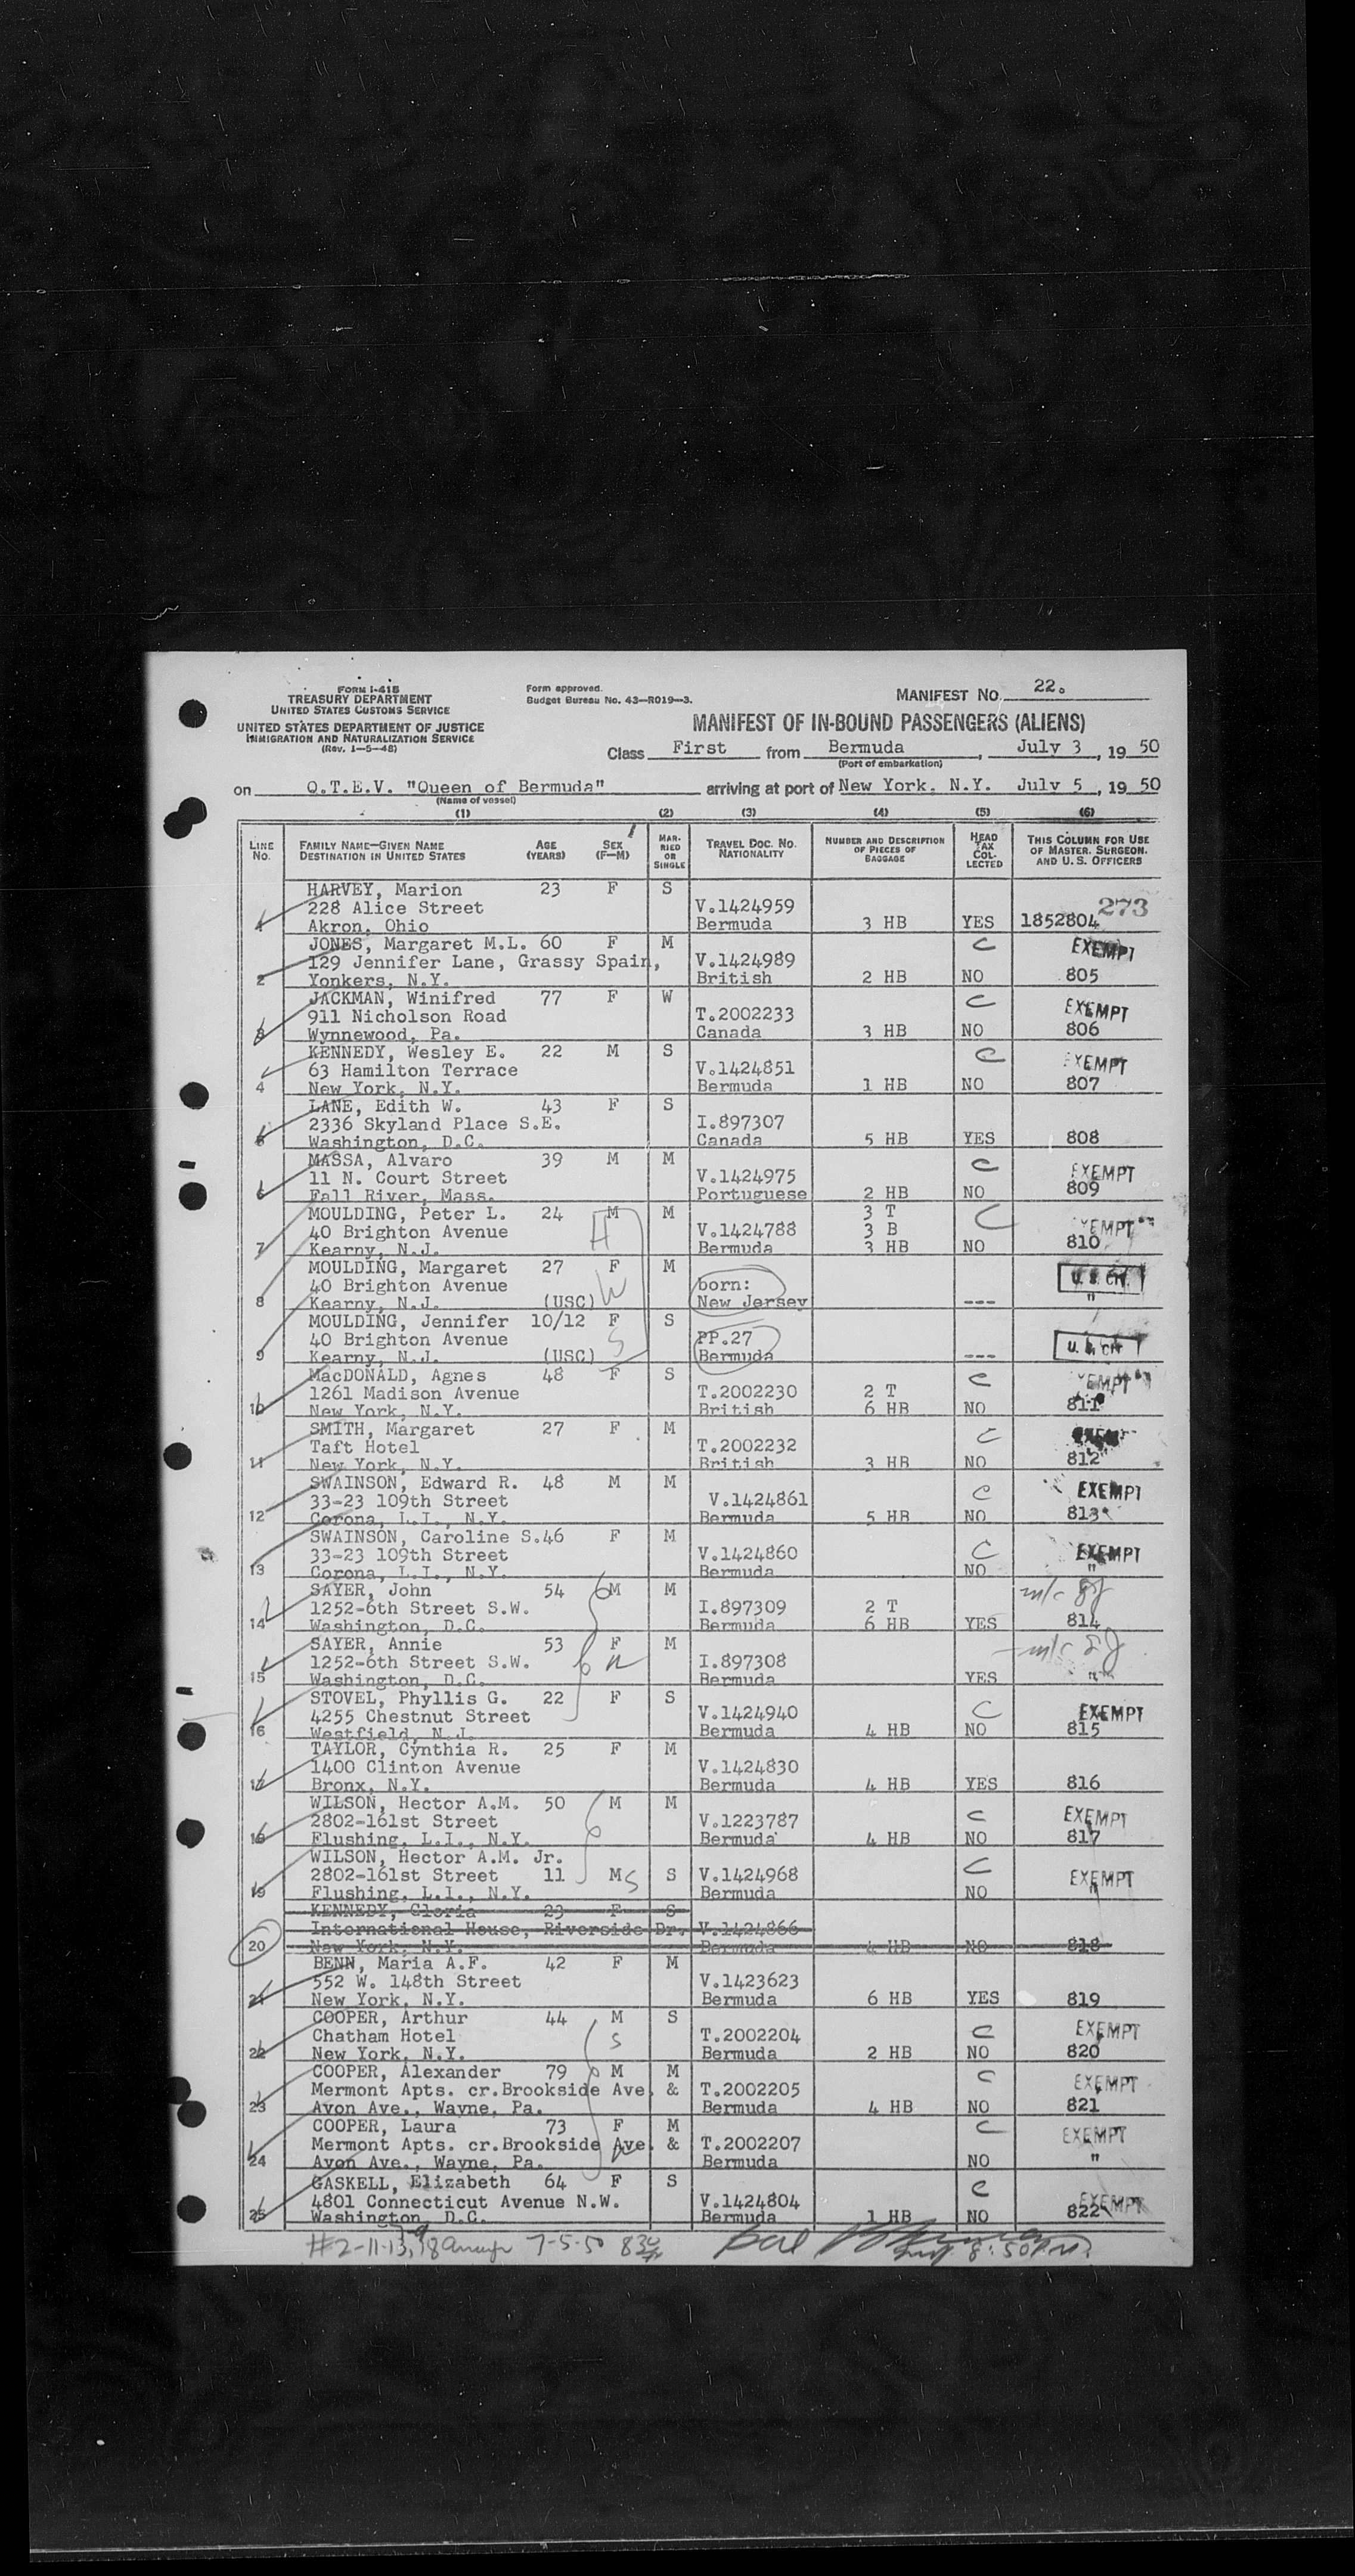 FORM I-415
TREASURY DEPARTMENT
UNITED STATES CUSTOMS SERVICE
UNITED STATES DEPARTMENT OF JUSTICE
IMMIGRATION AND NATURALIZATION SERVICE
(Rev. 1-5-48)
Form approved.
Budget Bureau No. 43-R019-3.
MANIFEST NO. 22.
MANIFEST OF IN-BOUND PASSENGERS (ALIENS)
Class First from Bermuda, July 3, 19 50
(Port of embarkation)
on Q.T.E.V. "Queen of Bermuda" arriving at port of New York, N.Y. July 5, 19 50
(Name of vessel)
(1) (2) (3) (4) (5) (6)
LINE NO. FAMILY NAME—GIVEN NAME DESTINATION IN UNITED STATES AGE (YEARS) SEX (F—M) MARRIED OR SINGLE TRAVEL DOC. NO. NATIONALITY NUMBER AND DESCRIPTION OF PIECES OF BAGGAGE HEAD TAX COLLECTED THIS COLUMN FOR USE OF MASTER, SURGEON, AND U. S. OFFICERS
HARVEY, Marion 23 F S
228 Alice Street V.1424959 273
1 Akron, Ohio Bermuda 3 HB YES 1852804
JONES, Margaret M.L. 60 F M C EXEMPT
129 Jennifer Lane, Grassy Spain, V.1424989
2 Yonkers, N.Y. British 2 HB NO 805
JACKMAN, Winifred 77 F W C EXEMPT
911 Nicholson Road T.2002233
3 Wynnewood, Pa. Canada 3 HB NO 806
KENNEDY, Wesley E. 22 M S C EXEMPT
63 Hamilton Terrace V.1424851
4 New York, N.Y. Bermuda 1 HB NO 807
LANE, Edith W. 43 F S
2336 Skyland Place S.E. I.897307
5 Washington, D.C. Canada 5 HB YES 808
MASSA, Alvaro 39 M M C EXEMPT
11 N. Court Street V.1424975
6 Fall River, Mass. Portuguese 2 HB NO 809
MOULDING, Peter L. 24 M M 3 T C
40 Brighton Avenue H V.1424788 3 B EXEMPT
7 Kearny, N.J. Bermuda 3 HB NO 810
MOULDING, Margaret 27 F M U. S. CIT.
40 Brighton Avenue W born:
8 Kearny, N.J. (USC) New Jersey --- "
MOULDING, Jennifer 10/12 F S
40 Brighton Avenue S PP.27 U. S. CIT
9 Kearny, N.J. (USC) Bermuda ---
MacDONALD, Agnes 48 F S C EXEMPT
1261 Madison Avenue T.2002230 2 T
10 New York, N.Y. British 6 HB NO 811
SMITH, Margaret 27 F M C EXEMPT
Taft Hotel T.2002232
11 New York, N.Y. British 3 HB NO 812
SWAINSON, Edward R. 48 M M C EXEMPT
33-23 109th Street V.1424861
12 Corona, L.I., N.Y. Bermuda 5 HB NO 813
SWAINSON, Caroline S. 46 F M C EXEMPT
33-23 109th Street V.1424860
13 Corona, L.I., N.Y. Bermuda NO "
SAYER, John 54 M M
1252-6th Street S.W. I.897309 2 T
14 Washington, D.C. Bermuda 6 HB YES 814
SAYER, Annie 53 F M
1252-6th Street S.W. I.897308
15 Washington, D.C. Bermuda YES "
STOVEL, Phyllis G. 22 F S C EXEMPT
4255 Chestnut Street V.1424940
16 Westfield, N.J. Bermuda 4 HB NO 815
TAYLOR, Cynthia R. 25 F M
1400 Clinton Avenue V.1424830
17 Bronx, N.Y. Bermuda 4 HB YES 816
WILSON, Hector A.M. 50 M M C EXEMPT
2802-161st Street V.1223787
18 Flushing, L.I., N.Y. Bermuda 4 HB NO 817
WILSON, Hector A.M. Jr. C
2802-161st Street 11 M S S V.1424968 EXEMPT
19 Flushing, L.I., N.Y. Bermuda NO "
KENNEDY, Gloria 23 F S
International House, Riverside Dr. V.1424866
20 New York, N.Y. Bermuda 4 HB NO 818
BENN, Maria A.F. 42 F M
552 W. 148th Street V.1423623
21 New York, N.Y. Bermuda 6 HB YES 819
COOPER, Arthur 44 M S EXEMPT
Chatham Hotel S T.2002204 C
22 New York, N.Y. Bermuda 2 HB NO 820
COOPER, Alexander 79 M M C EXEMPT
Mermont Apts. cr.Brookside Ave. & T.2002205
23 Avon Ave., Wayne, Pa. Bermuda 4 HB NO 821
COOPER, Laura 73 F M C EXEMPT
Mermont Apts. cr.Brookside Ave. & T.2002207
24 Avon Ave., Wayne, Pa. Bermuda NO "
GASKELL, Elizabeth 64 F S C
4801 Connecticut Avenue N.W. V.1424804 EXEMPT
25 Washington, D.C. Bermuda 1 HB NO 822
#2-11-13, 18 7-5-50 830
8:50 P.M.